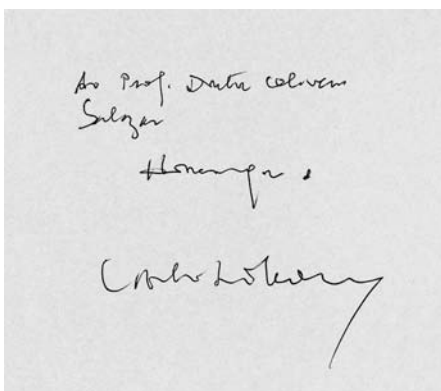 Ao Prof. Doutor Oliveira
Salazar
Homenagem